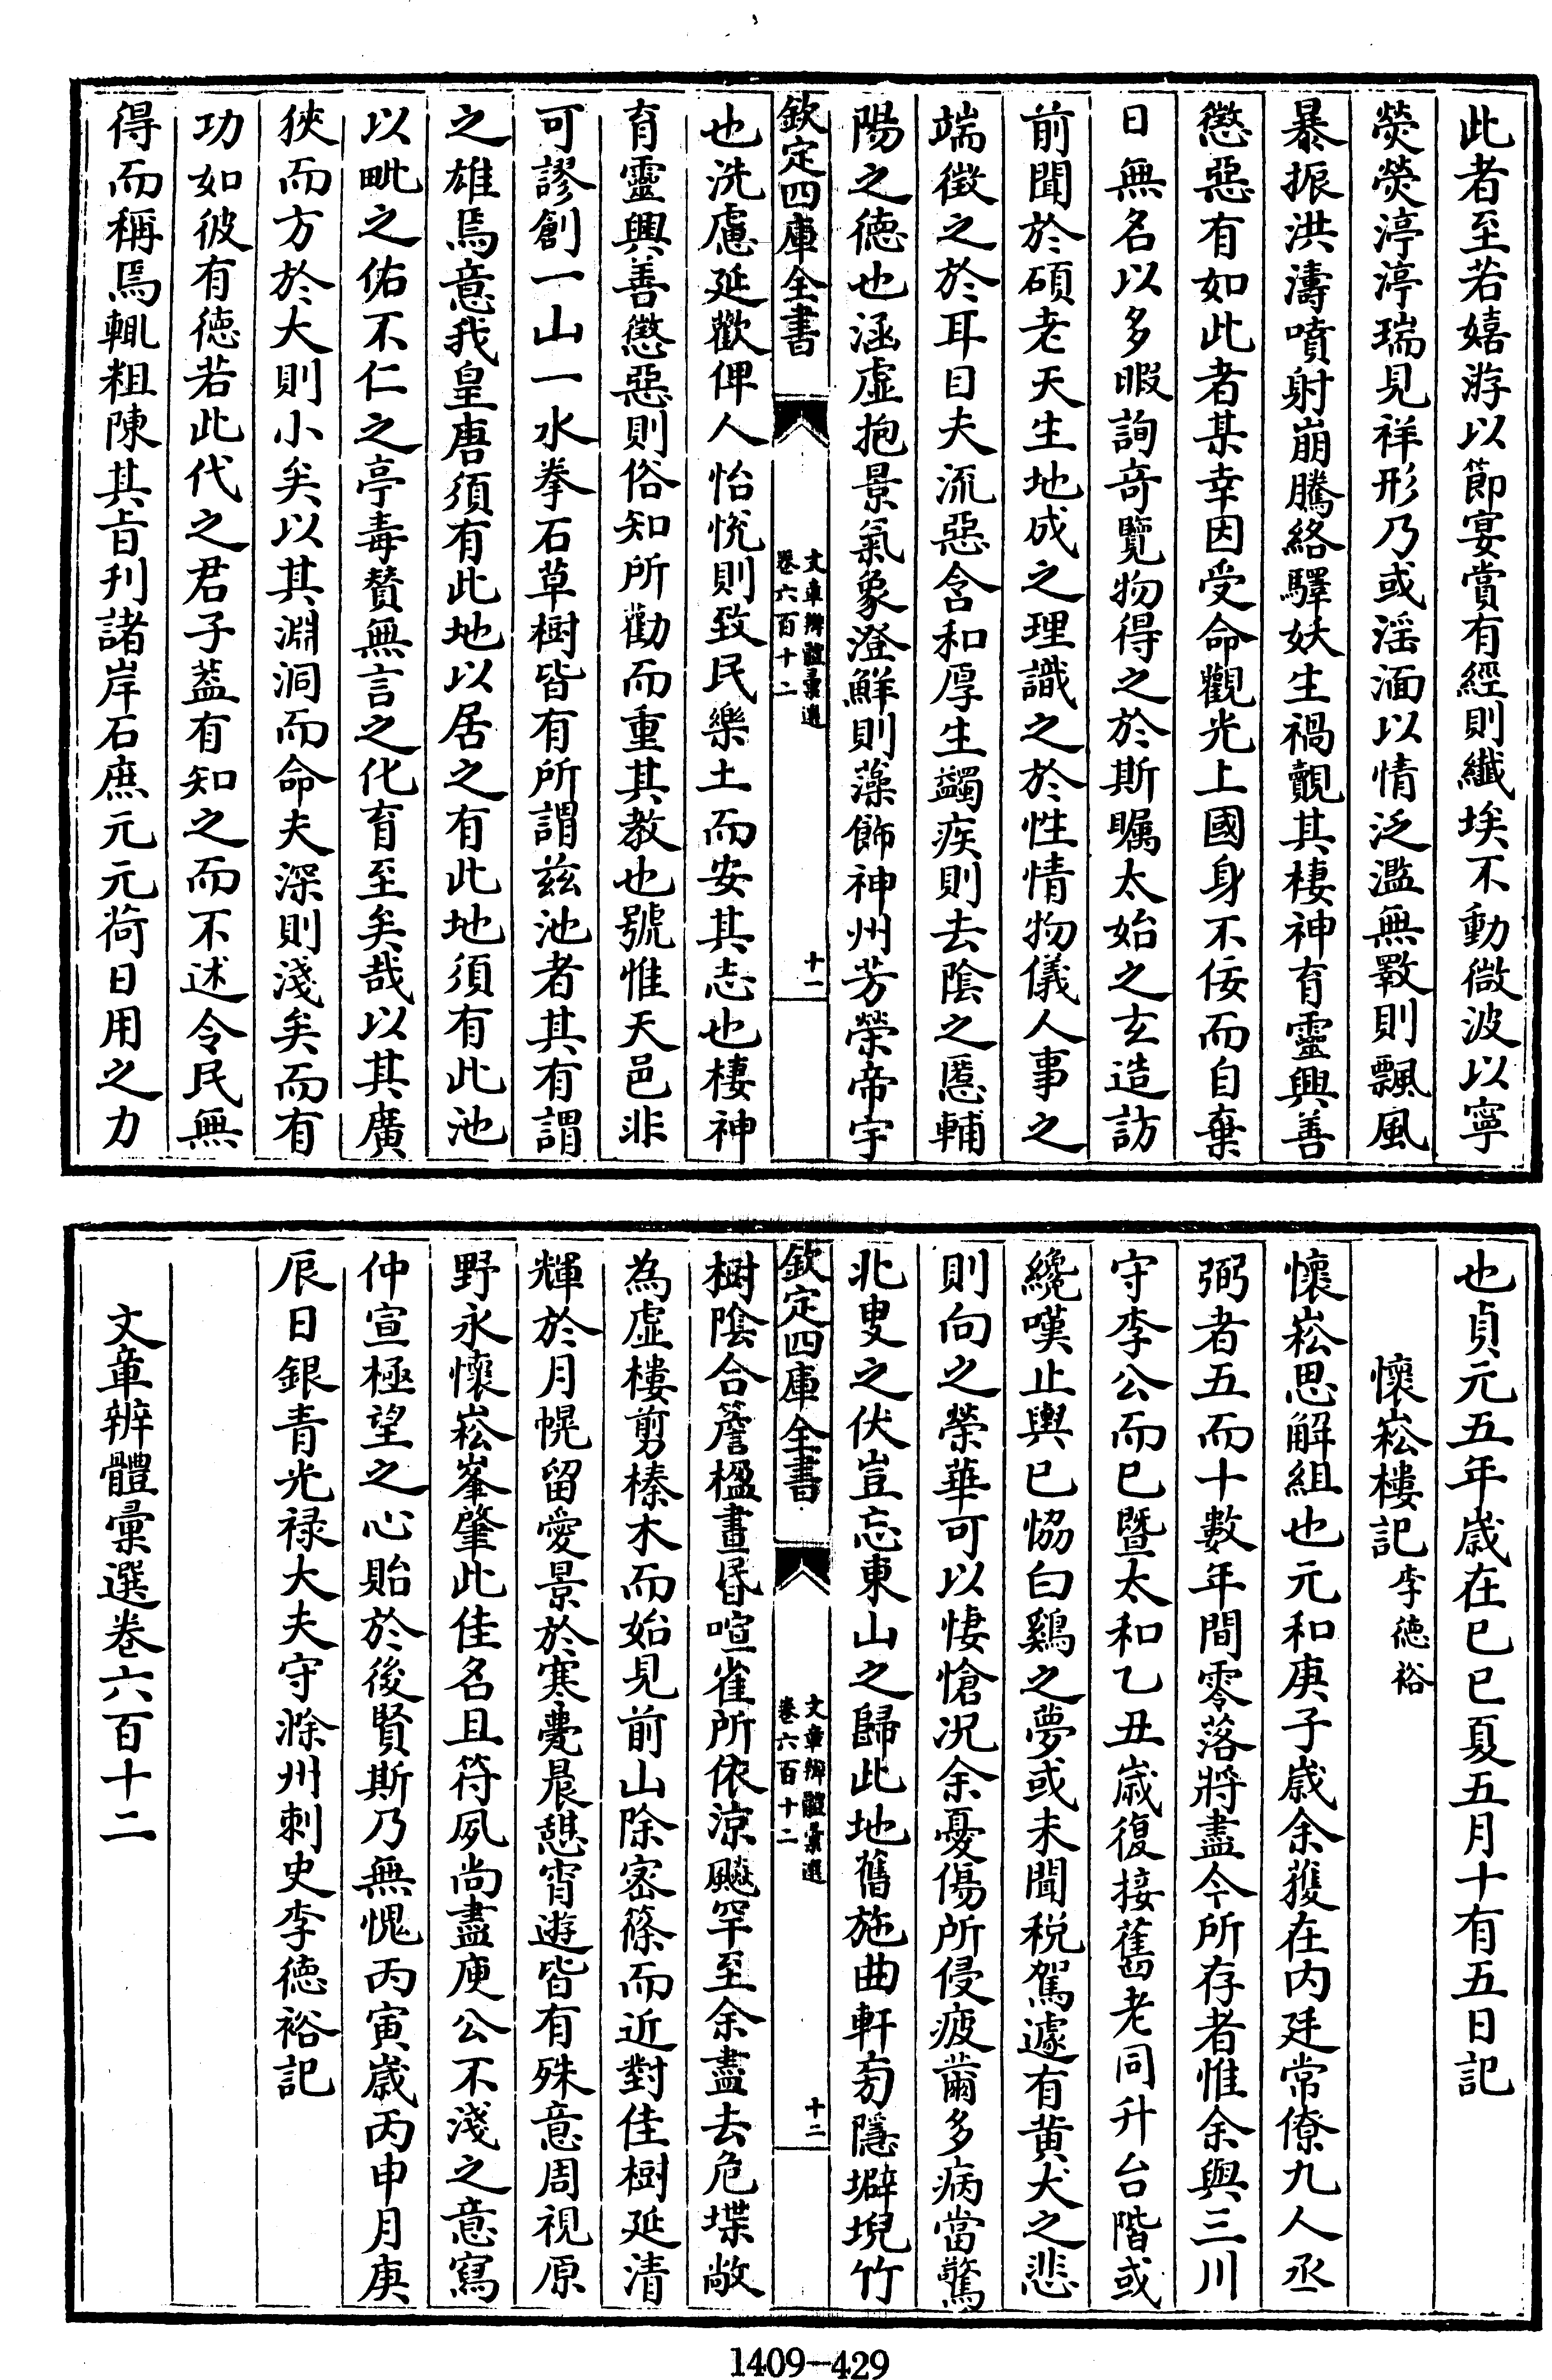 此者至若嬉游以節宴賞有經則纖埃不動微波以寧
熒熒渟渟瑞見祥形乃或淫湎以情泛濫無斁則飄風
暴振洪濤噴射崩騰絡驛妖生禍覿其棲神育靈興善
懲惡有如此者某幸因受命觀光上國身不佞而自棄
日無名以多暇詢奇覽物得之於斯矚太始之玄造訪
前聞於碩老天生地成之理識之於性情物儀人事之
端徵之於耳目夫流惡含和厚生蠲疾則去陰之慝輔
陽之徳也涵虛抱景氣象澄鮮則藻飾神州芳榮帝宇
欽定四庫全書
文章辨體彙選
卷六百十二
十一
也洗慮延歡俾人怡悅則致民樂土而安其志也棲神
育靈興善懲惡則俗知所勸而重其教也號惟天邑非
可謬創一山一水拳石草樹皆有所謂茲池者其有謂
之雄焉意我皇唐須有此地以居之有此地須有此池
以毗之佑不仁之亭毒贊無言之化育至矣哉以其廣
狹而方於大則小矣以其淵洞而命夫深則淺矣而有
功如彼有徳若此代之君子葢有知之而不述令民無
得而稱焉輒粗陳其旨刋諸岸石庶元元荷日用之力
也貞元五年歳在己巳夏五月十有五日記
懷崧樓記李徳裕
懷崧思解組也元和庚子歳余獲在内廷常僚九人丞
弼者五而十數年間零落將盡今所存者惟余與三川
守李公而已暨太和乙丑歳復接舊老同升台階或
纔嘆止輿已協白鷄之夢或未聞税駕遽有黄犬之悲
則向之榮華可以悽愴况余憂傷所侵疲薾多病當驚
北叟之伏豈忘東山之歸此地舊施曲軒旁隱塀堄竹
欽定四庫全書
文章辨體彙選
卷六百十二
十二
樹隂合簷楹晝昏喧雀所依涼飈罕至余盡去危堞敞
為虛樓剪榛木而始見前山除密篠而近對佳樹延清
輝於月幌留愛景於寒𦒱晨憩宵遊皆有殊意周視原
野永懷崧峯肇此佳名且符夙尚盡庾公不淺之意寫
仲宣極望之心貽於後賢斯乃無愧丙寅歳丙申月庚
辰日銀青光禄大夫守滁州刺史李徳裕記
文章辨體彙選卷六百十二
1409—429